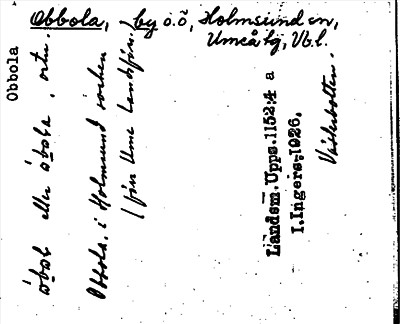 Obbola
Obbola, by o. ö, Holmsund sn,
Umeå tg, Vb.l.
åbål eller åbola, ortn.
Obbola i Holmsund socken
(förr Ume landsför.)
Landsm. Upps. 1152:4 a
I. Ingers, 1926,
Västerbotten.